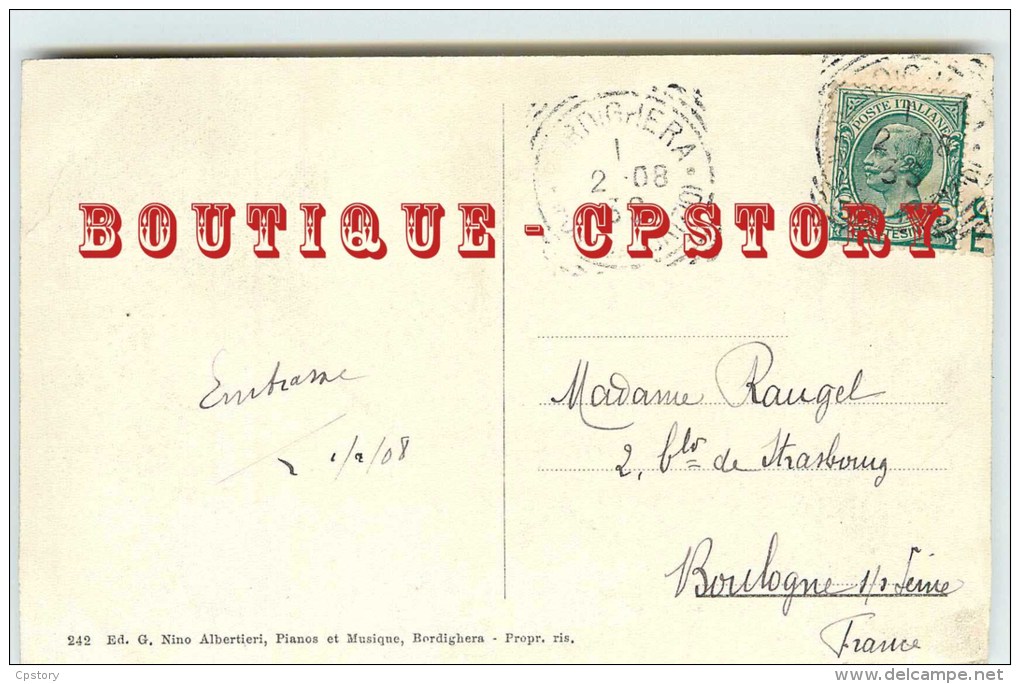 BORDIGHERA
1
2 08
POSTE ITALIANE
BOUTIQUE - CPSTORY
Embrasse
1/2/08
Madame Raugel
2, blv de Strasbourg
Boulogne s/s Seine
France
242 Ed. G. Nino Albertieri, Pianos et Musique, Bordighera - Propr. ris.
Cpstory
delcampe.net